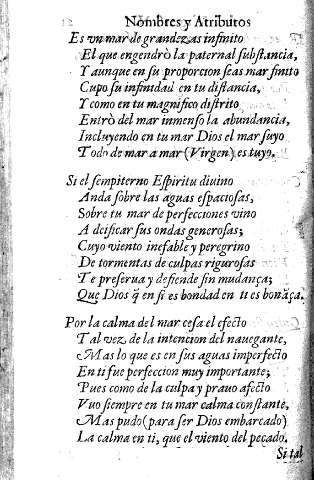 12 Nombres y Atributos
Es vn mar de grandezas infinito
El que engendrò la paternal substancia,
Y aunque en su proporcion seas mar finito
Cupo su infinidad en tu distancia,
Y como en tu magnifico distrito
Entrò del mar inmenso la abundancia,
Incluyendo en tu mar Dios el mar suyo
Todo de mar a mar (Virgen) es tuyo.
Si el sempiterno Espiritu diuino
Anda sobre las aguas espaciosas,
Sobre tu mar de perfecciones vino
A deificar sus ondas generosas;
Cuyo viento inefable y peregrino
De tormentas de culpas rigurosas
Te preserua y defiende sin mudança;
Que Dios q̃ en si es bondad en ti es bonãça.
Por la calma del mar cesa el efecto
Tal vez de la intencion del nauegante,
Mas lo que es en sus aguas imperfecto
En ti fue perfeccion muy importante;
Pues como de la culpa y prauo afecto
Vuo siempre en tu mar calma constante,
Mas pudo (para ser Dios embarcado)
La calma en ti, que el viento del pecado.
Si tal